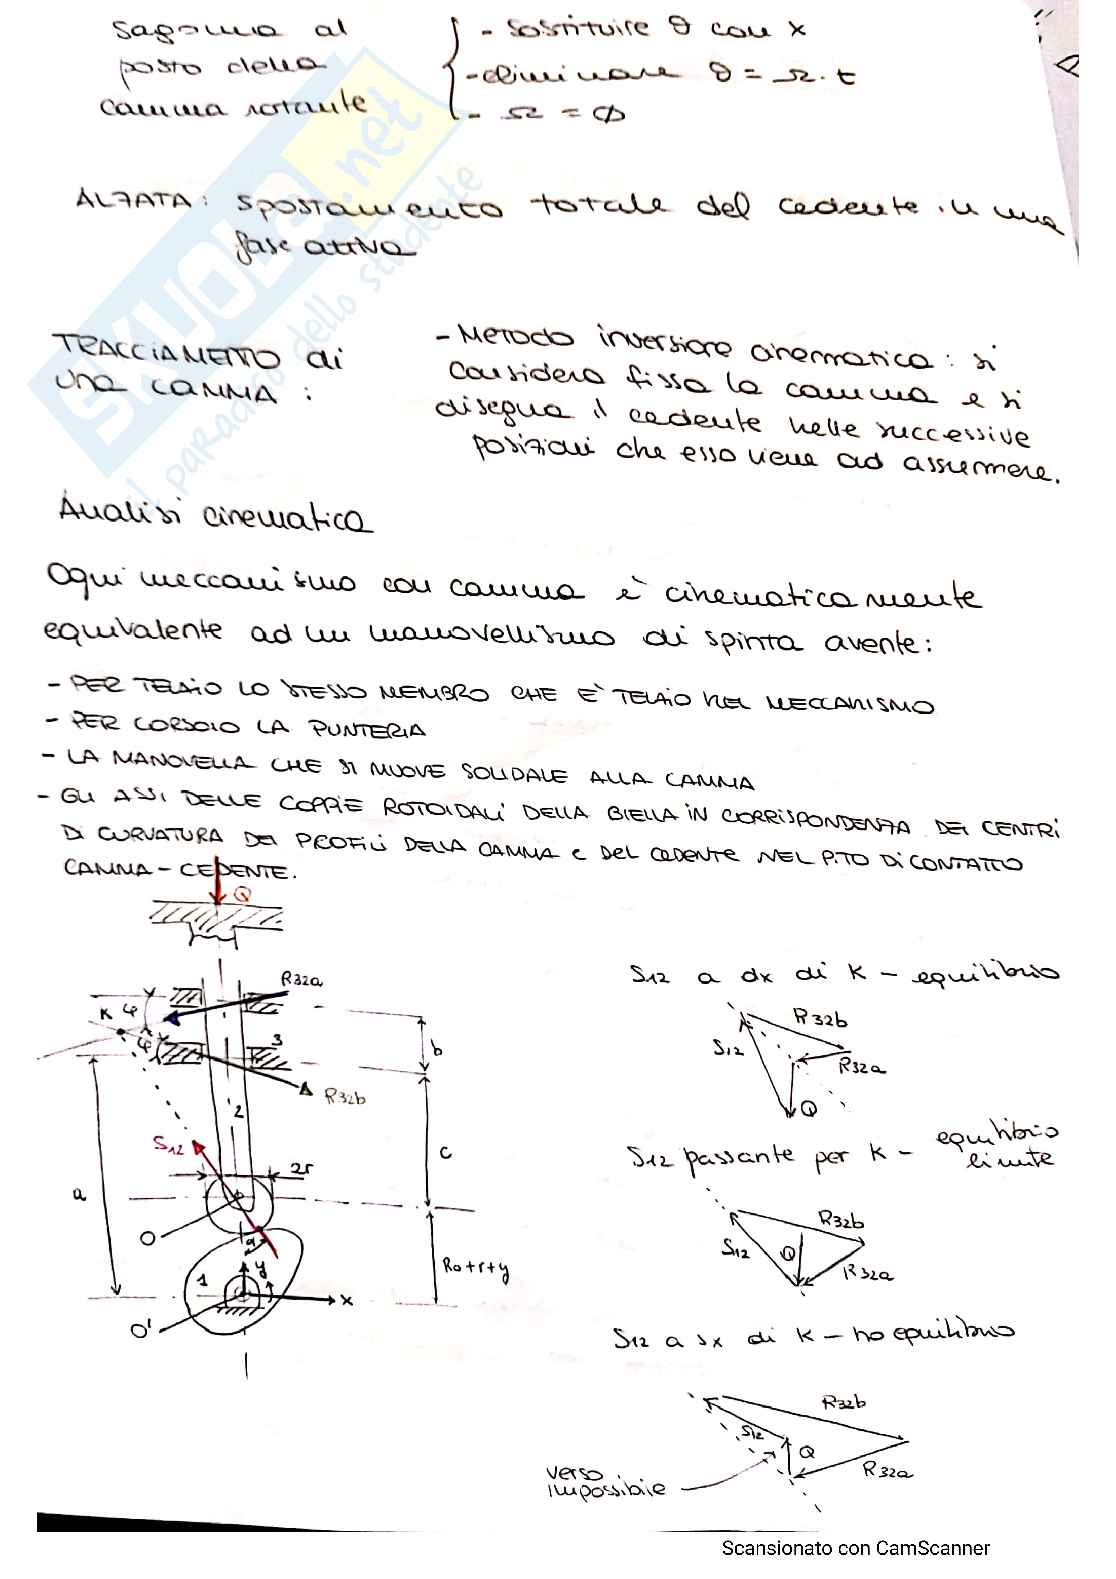 sagoma al
posto della
camma rotante
- sostituire θ con x
- eliminare θ = Ω · t
- Ω = Φ
ALZATA: spostamento totale del cedente in una
fase attiva
TRACCIAMENTO di
una CAMMA :
- Metodo inversione cinematica : si
considera fissa la camma e si
disegna il cedente nelle successive
posizioni che esso viene ad assumere.
Analisi cinematica
Ogni meccanismo con camma è cinematicamente
equivalente ad un manovellismo di spinta avente:
- PER TELAIO LO STESSO MEMBRO CHE E' TELAIO NEL MECCANISMO
- PER CORSOIO LA PUNTERIA
- LA MANOVELLA CHE SI MUOVE SOLIDALE ALLA CAMMA
- GLI ASSI DELLE COPPIE ROTOIDALI DELLA BIELLA IN CORRISPONDENZA DEI CENTRI
DI CURVATURA DEI PROFILI DELLA CAMMA e DEL CEDENTE NEL P.TO DI CONTATTO
CAMMA - CEDENTE.
Q
R32a
K
φ
φ
3
b
R32b
2
S12
2r
c
a
O
α
y
1
R0+r+y
x
O'
S12 a dx di K - equilibrio
R32b
S12
R32a
Q
S12 passante per K - equilibrio
limite
R32b
S12
Q
R32a
S12 a sx di K - no equilibrio
R32b
S12
Q
R32a
verso
impossibile
SKUOLA.net
il paradiso dello studente
Scansionato con CamScanner